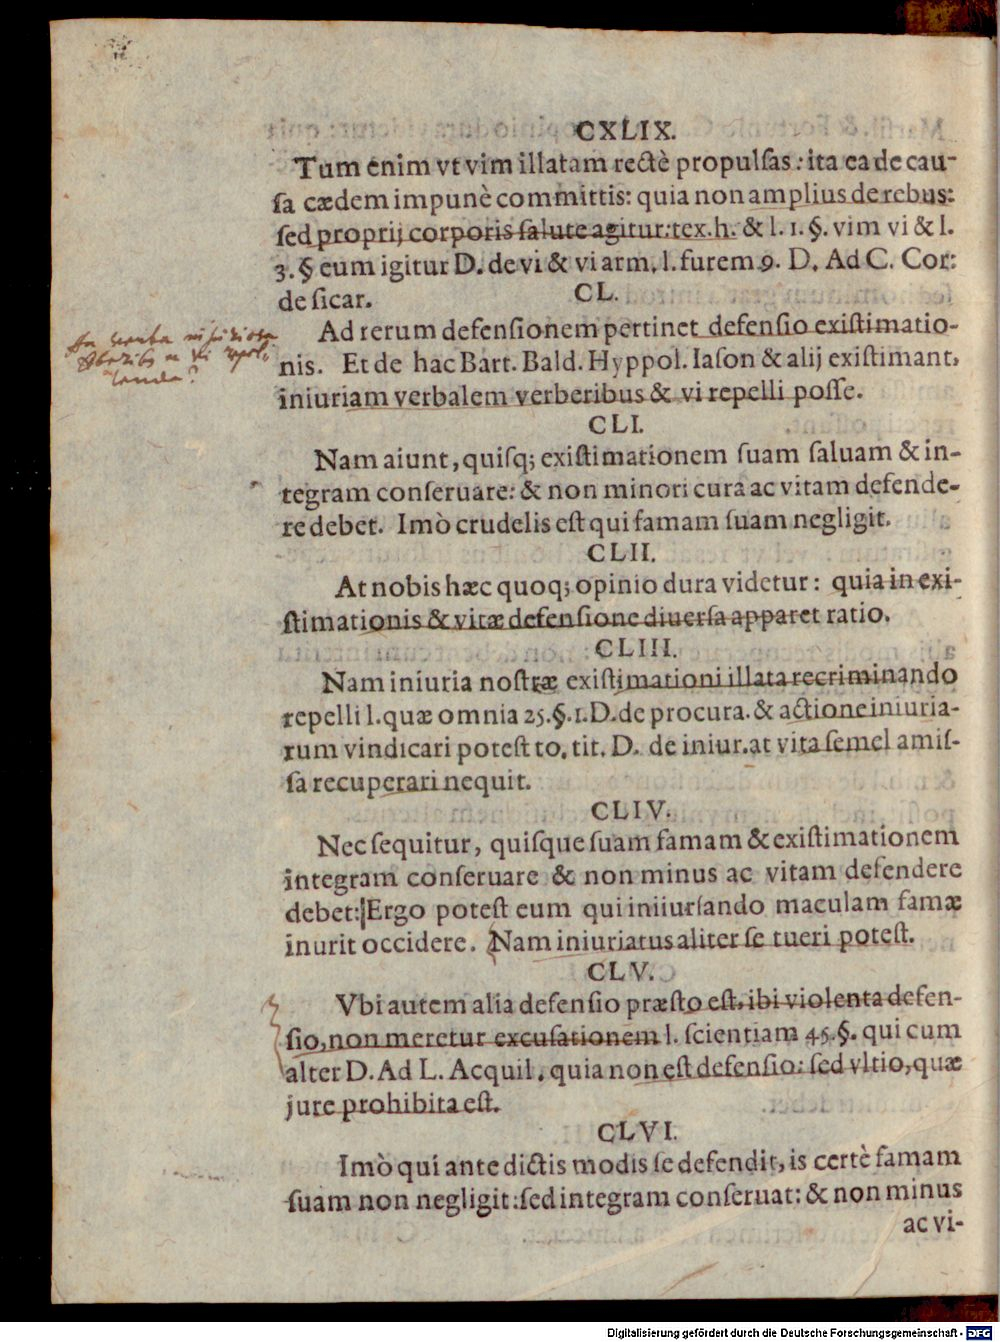 CXLIX.
Tum enim vt vim illatam rectè propulsas: ita ea de cau-
sa cædem impunè committis: quia non amplius de rebus:
sed proprij corporis salute agitur: tex. h. & l. 1. §. vim vi & l.
3. § eum igitur D. de vi & vi arm. l. furem 9. D. Ad C. Cor:
de sicar.
CL.
Ad rerum defensionem pertinet defensio existimatio-
nis. Et de hac Bart. Bald. Hyppol. Iason & alij existimant,
iniuriam verbalem verberibus & vi repelli posse.
An verba
vi repel-
lenda?
CLI.
Nam aiunt, quisq; existimationem suam saluam & in-
tegram conseruare: & non minori cura ac vitam defende-
re debet. Imò crudelis est qui famam suam negligit.
CLII.
At nobis hæc quoq; opinio dura videtur: quia in exi-
stimationis & vitæ defensione diuersa apparet ratio.
CLIII.
Nam iniuria nostræ existimationi illata recriminando
repelli l. quæ omnia 25. §. 1. D. de procura. & actione iniuria-
rum vindicari potest to. tit. D. de iniur. at vita semel amis-
sa recuperari nequit.
CLIV.
Nec sequitur, quisque suam famam & existimationem
integram conseruare & non minus ac vitam defendere
debet: Ergo potest eum qui iniiuriando maculam famæ
inurit occidere. Nam iniuriatus aliter se tueri potest.
CLV.
Vbi autem alia defensio præsto est, ibi violenta defen-
sio, non meretur excusationem l. scientiam 45. §. qui cum
alter D. Ad L. Acquil. quia non est defensio: sed vltio, quæ
jure prohibita est.
CLVI.
Imò qui ante dictis modis se defendit, is certè famam
suam non negligit: sed integram conseruat: & non minus
ac vi-
Digitalisierung gefördert durch die Deutsche Forschungsgemeinschaft - DFG